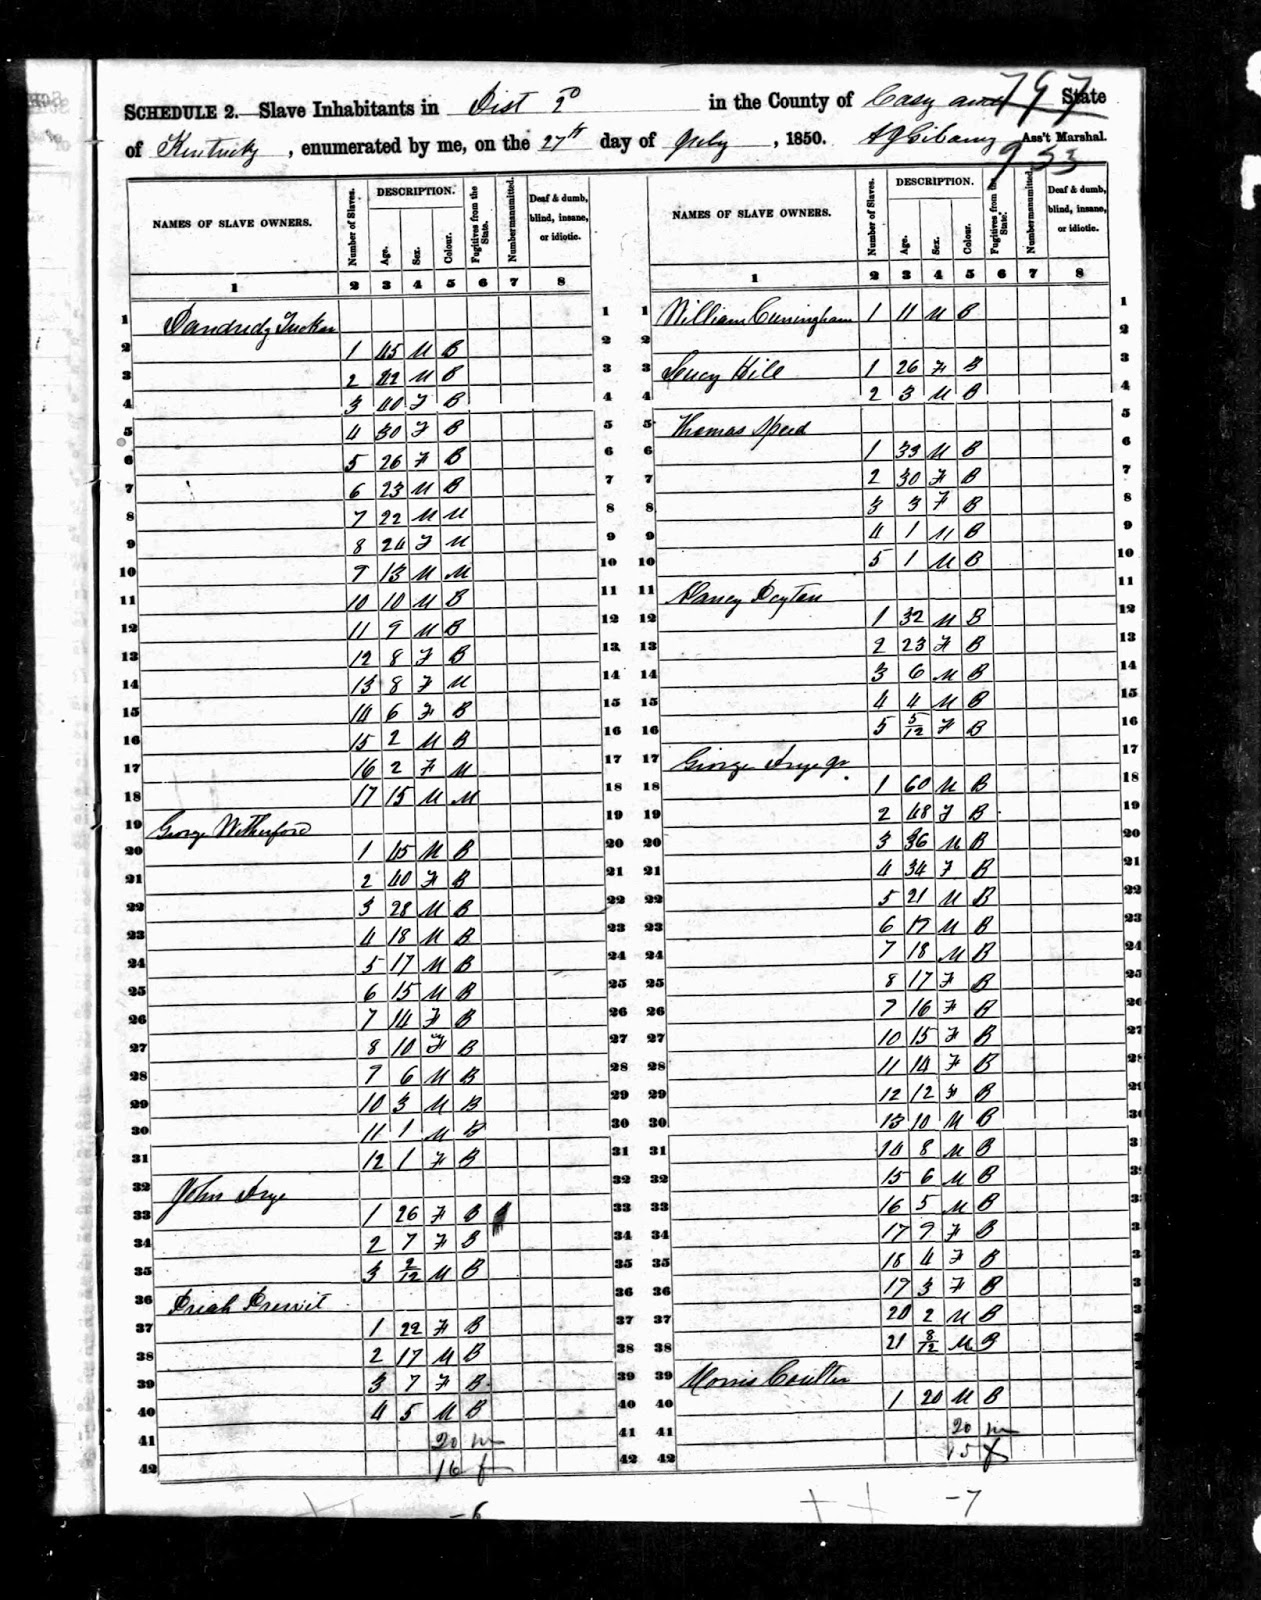 797
SCHEDULE 2.—Slave Inhabitants in Dist 2D in the County of Casy and State
of Kentucky, enumerated by me, on the 27th day of July, 1850. Ass't Marshal.
953
NAMES OF SLAVE OWNERS. Number of Slaves. DESCRIPTION. Age. Sex. Colour. Fugitives from the State. Number manumitted. Deaf & dumb, blind, insane, or idiotic.
1 2 3 4 5 6 7 8
1 Dandredg Tucker 1
2 1 45 M B 2
3 2 42 M B 3
4 3 40 F B 4
5 4 30 F B 5
6 5 26 F B 6
7 6 23 M B 7
8 7 22 M M 8
9 8 24 F M 9
10 9 13 M M 10
11 10 10 M B 11
12 11 9 M B 12
13 12 8 F B 13
14 13 8 F M 14
15 14 6 F B 15
16 15 2 M B 16
17 16 2 F M 17
18 17 15 M M 18
19 George Witherford 19
20 1 45 M B 20
21 2 40 F B 21
22 3 28 M B 22
23 4 18 M B 23
24 5 17 M B 24
25 6 15 M B 25
26 7 14 F B 26
27 8 10 F B 27
28 9 6 M B 28
29 10 3 M B 29
30 11 1 M B 30
31 12 1 F B 31
32 John Frye 32
33 1 26 F B 33
34 2 7 F B 34
35 3 2/12 M B 35
36 Uriah Prewit 36
37 1 22 F B 37
38 2 17 M B 38
39 3 7 F B 39
40 4 5 M B 40
41 20 m 41
42 16 f 42
-6
NAMES OF SLAVE OWNERS. Number of Slaves. DESCRIPTION. Age. Sex. Colour. Fugitives from the State. Number manumitted. Deaf & dumb, blind, insane, or idiotic.
1 2 3 4 5 6 7 8
1 William Cunningham 1 11 M B 1
2 2
3 Lucy Hill 1 26 F B 3
4 2 3 M B 4
5 Thomas Speed 5
6 1 33 M B 6
7 2 30 F B 7
8 3 3 F B 8
9 4 1 M B 9
10 5 1 M B 10
11 Nancy Peyton 11
12 1 32 M B 12
13 2 23 F B 13
14 3 6 M B 14
15 4 4 M B 15
16 5 5/12 F B 16
17 George Frye Jr. 17
18 1 60 M B 18
19 2 48 F B 19
20 3 36 M B 20
21 4 34 F B 21
22 5 21 M B 22
23 6 19 M B 23
24 7 18 M B 24
25 8 17 F B 25
26 9 16 F B 26
27 10 15 F B 27
28 11 14 F B 28
29 12 12 F B 29
30 13 10 M B 30
31 14 8 M B 3
32 15 6 M B 3
33 16 5 M B 3
34 17 9 F B 3
35 18 4 F B 3
36 19 3 F B 3
37 20 2 M B 3
38 21 8/12 M B 3
39 Morris Coulter
40 1 20 M B
41 20 m
42 15 f
-7